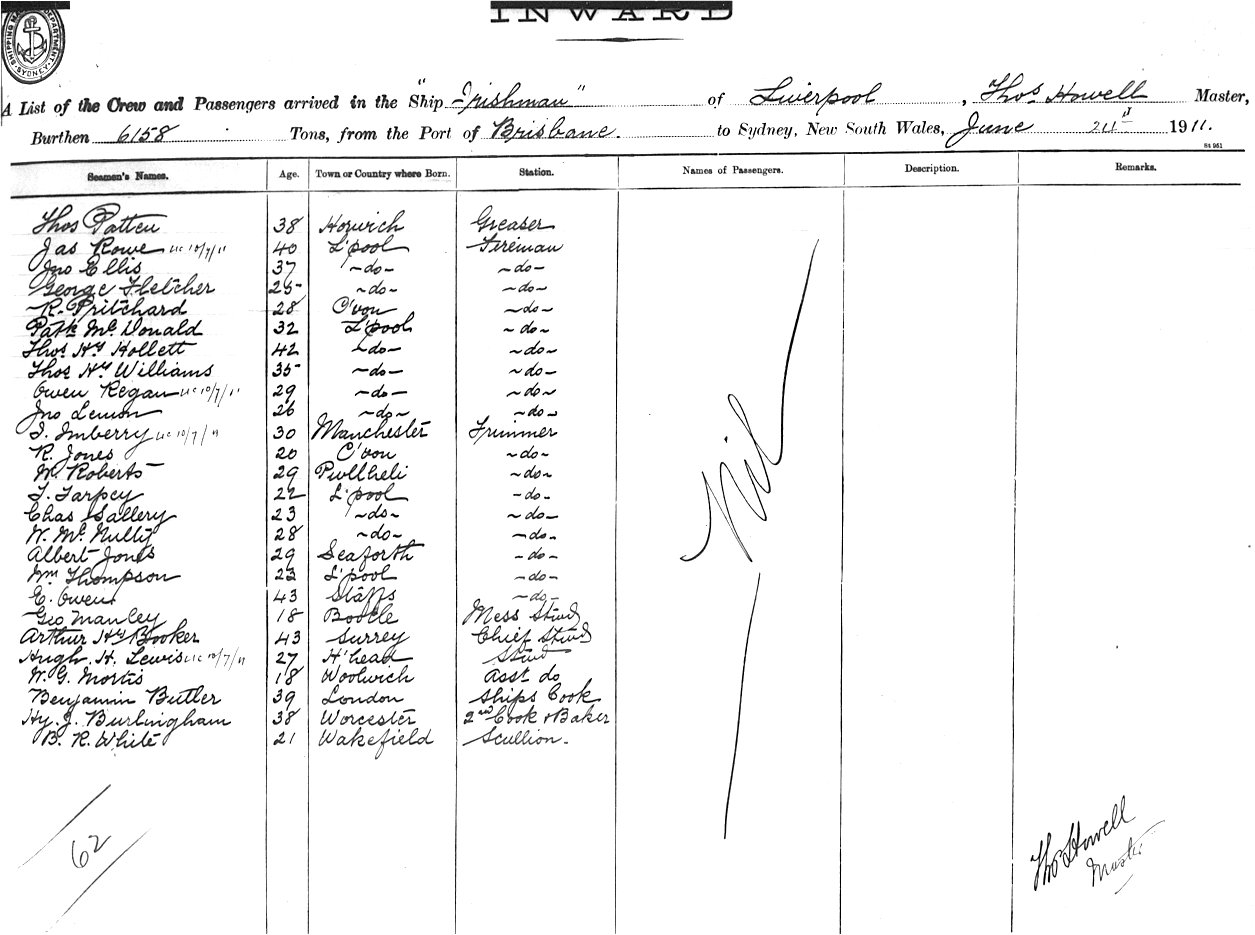 INWARD
SHIPPING MASTER'S DEPARTMENT. SYDNEY.
A List of the Crew and Passengers arrived in the Ship "Irishman" of Liverpool, Thos Howell Master,
Burthen 6158 Tons, from the Port of Brisbane. to Sydney, New South Wales, June 24th 1911.
St 951
Seamen's Names. Age. Town or Country where Born. Station. Names of Passengers. Description. Remarks.
Thos Patten 38 Horwich Greaser
Jas Rowe 10/7/11 40 L'pool Fireman
Jno Ellis 37 -do- -do-
George Fletcher 25 -do- -do-
R. Pritchard 28 C'von -do-
Patk McDonald 32 L'pool -do-
Thos Hy Hollett 42 -do- -do-
Thos Hy Williams 35 -do- -do-
Owen Regan 10/7/11 29 -do- -do-
Jno Lemon 26 -do- -do-
Imberry 10/7/11 30 Manchester Trimmer
R. Jones 20 C'von -do-
W. Roberts 29 Pwllheli -do-
T. Tarpey 22 L'pool -do-
Chas Sallery 23 -do- -do-
W. McNulty 28 -do- -do-
Albert Jones 29 Seaforth -do-
Wm Thompson 23 L'pool -do-
E. Owen 43 Staffs -do-
Geo Manley 18 Bootle Mess Stwd
Arthur Hy Booker 43 Surrey Chief Stwd
Hugh. H. Lewis 10/7/11 27 H'head Stwd
W. G. Mortis 18 Woolwich Asst do
Benjamin Butler 39 London Ships Cook
Hy. J. Burlingham 38 Worcester 2nd Cook & Baker
B. R. White 21 Wakefield Scullion.
Nil
62
Thos Howell
Master